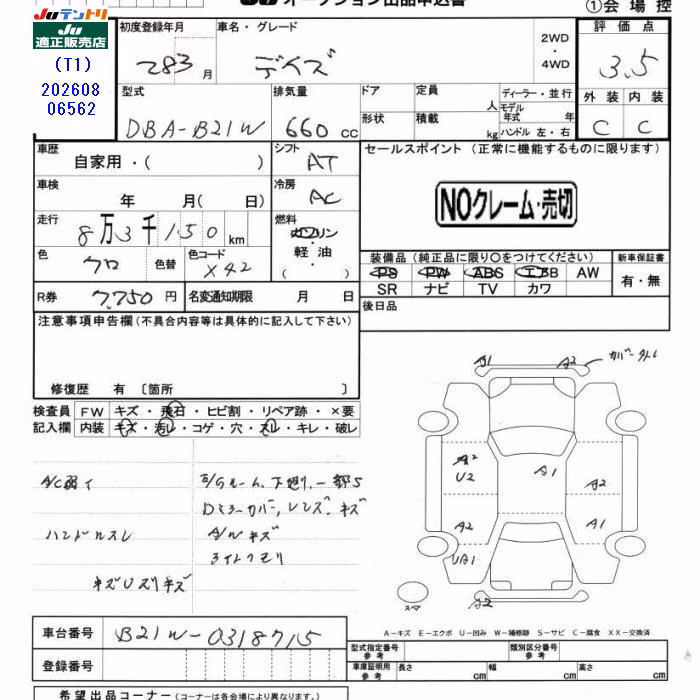 JUテントリ
JU
適正販売店
(T1)
202608
06562
JU オークション出品申込書
①会場控
初度登録年月 283月
車名・グレード デイズ
2WD ・ 4WD
評価点 3.5
外装 C 内装 C
型式 DBA-B21W
排気量 660 cc
ドア 形状
定員 人 積載 kg
ディーラー・並行
モデル年式 年
ハンドル 左・右
車歴 自家用・( )
シフト AT
セールスポイント(正常に機能するものに限ります)
NOクレーム・売切
車検 年 月( 日)
冷房 AC
走行 8万3千150 km
燃料 ガソリン 軽油 ( )
色 クロ 色替 色コード X42
装備品(純正品に限り○をつけてください)
PS PW ABS エアB AW
SR ナビ TV カワ
新車保証書 有・無
R券 7,750円 名変通知期限 月 日
後日品
注意事項申告欄(不具合内容等は具体的に記入して下さい)
修復歴 有 〔箇所 〕
検査員記入欄
FW キズ・飛石・ヒビ割・リペア跡・×要
内装 キズ・汚レ・コゲ・穴・スレ・キレ・破レ
A/C弱イ
ハンドルスレ
キズUズリキズ
E/Gルーム、下廻り、一部S
Dミラーカバー、レンズ、キズ
A/Wキズ
ライトクモリ
A1 A2
A2
U2
A1 A2
A2 A1
UA1
A2
スペア
A－キズ E－エクボ U－凹み W－補修跡 S－サビ C－腐食 XX－交換済
車台番号 B21W-0318715
登録番号
型式指定番号 参考
類別区分番号 参考
車庫証明用 参考 長さ cm 幅 cm 高さ cm
希望出品コーナー(コーナーは各会場により異なります。)